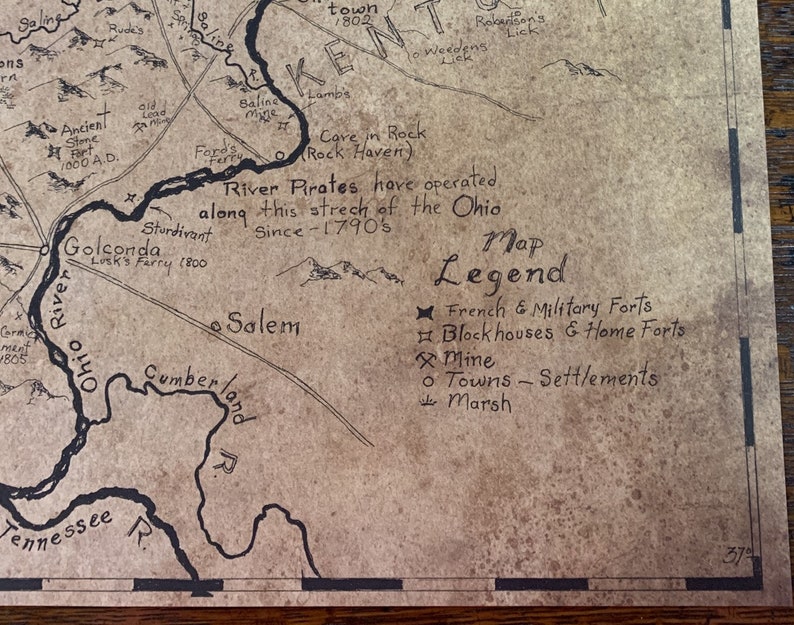 town
1802
Robertson's
Lick
Weedens
Lick
KENTU
Saline
Rude's
Saline
R.
Saline
Mine
Lambs
Old
Lead
Mine
Ancient
Stone
Fort
1000 A.D.
Ford's
Ferry
Cave in Rock
(Rock Haven)
River Pirates have operated
along this strech of the Ohio
Since - 1790's
Sturdivant
Golconda
Lusk's Ferry 1800
Map
Legend
French & Military Forts
Blockhouses & Home Forts
Mine
Towns - Settlements
Marsh
Salem
Ohio River
1805
Cumberland
R.
Tennessee R.
37°